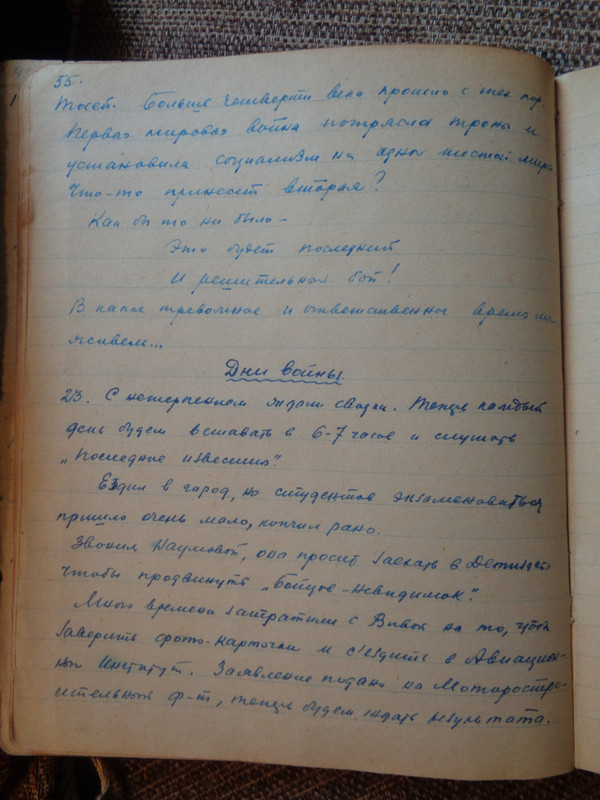 55.
тосет. Больше четверти века прошло с тех пор.
Первая мировая война потрясла троны и
установила социализм на одной шестой мира.
Что-то принесет вторая?
Как бы то ни было –
Это будет последний
И решительный бой!
В какое тревожное и ответственное время мы
живем...
Дни войны.
23. С нетерпением ждали сводки. Теперь каждый
день будем вставать в 6-7 часов и слушать
„Последние известия".
Ездил в город, но студентов экзаменоваться
пришло очень мало, кончил рано.
Звонил Наумовой, она просит заехать в Детиздат
чтобы продвинуть „Бойцов-невидимок".
Много времени затратили с Вивой на то, чтоб
заверить фото-карточки и съездить в Авиацион-
ный Институт. Заявление подано на Моторострo-
ительный ф-т, теперь будем ждать результата.